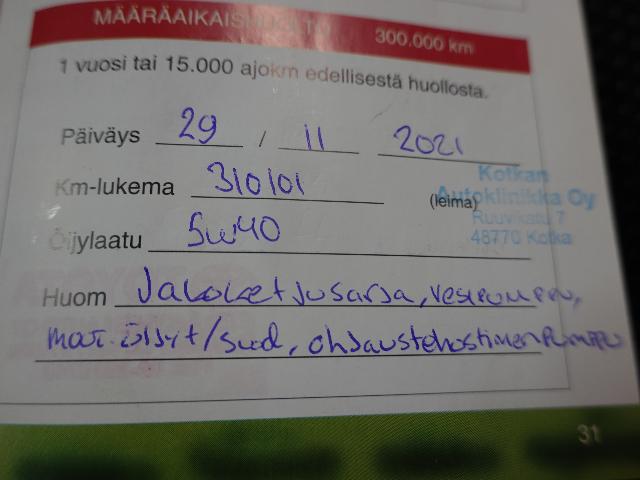 MÄÄRÄAIKAISHUOLTO 300.000 km
1 vuosi tai 15.000 ajokm edellisestä huollosta.
Päiväys 29 / 11 2021
Km-lukema 310101
(leima)
Kotkan
Autoklinikka Oy
Ruuvikatu 7
48770 Kotka
Öljylaatu 5w40
Huom Jakoketjusarja, vesipumppu,
moot. öljyt/suod, ohjaustehostimen pumppu
31